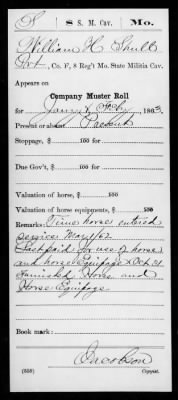 S | 8 S. M. Cav. | Mo.
William H Shult
Pvt, Co. F, 8 Reg't Mo. State Militia Cav.
Appears on
Company Muster Roll
for Jany & Feby, 1863.
Present or absent Present
Stoppage, $ 100 for
Due Gov't, $ 100 for
Valuation of horse, $ 100
Valuation of horse equipments, $ 100
Remarks: Time horse entered
service May 1/62
Last paid for use of horse
and horse Equipage Oct 31
Furnished Horse and
Horse Equipage
Book mark:
Jacobson
(358) Copyist.